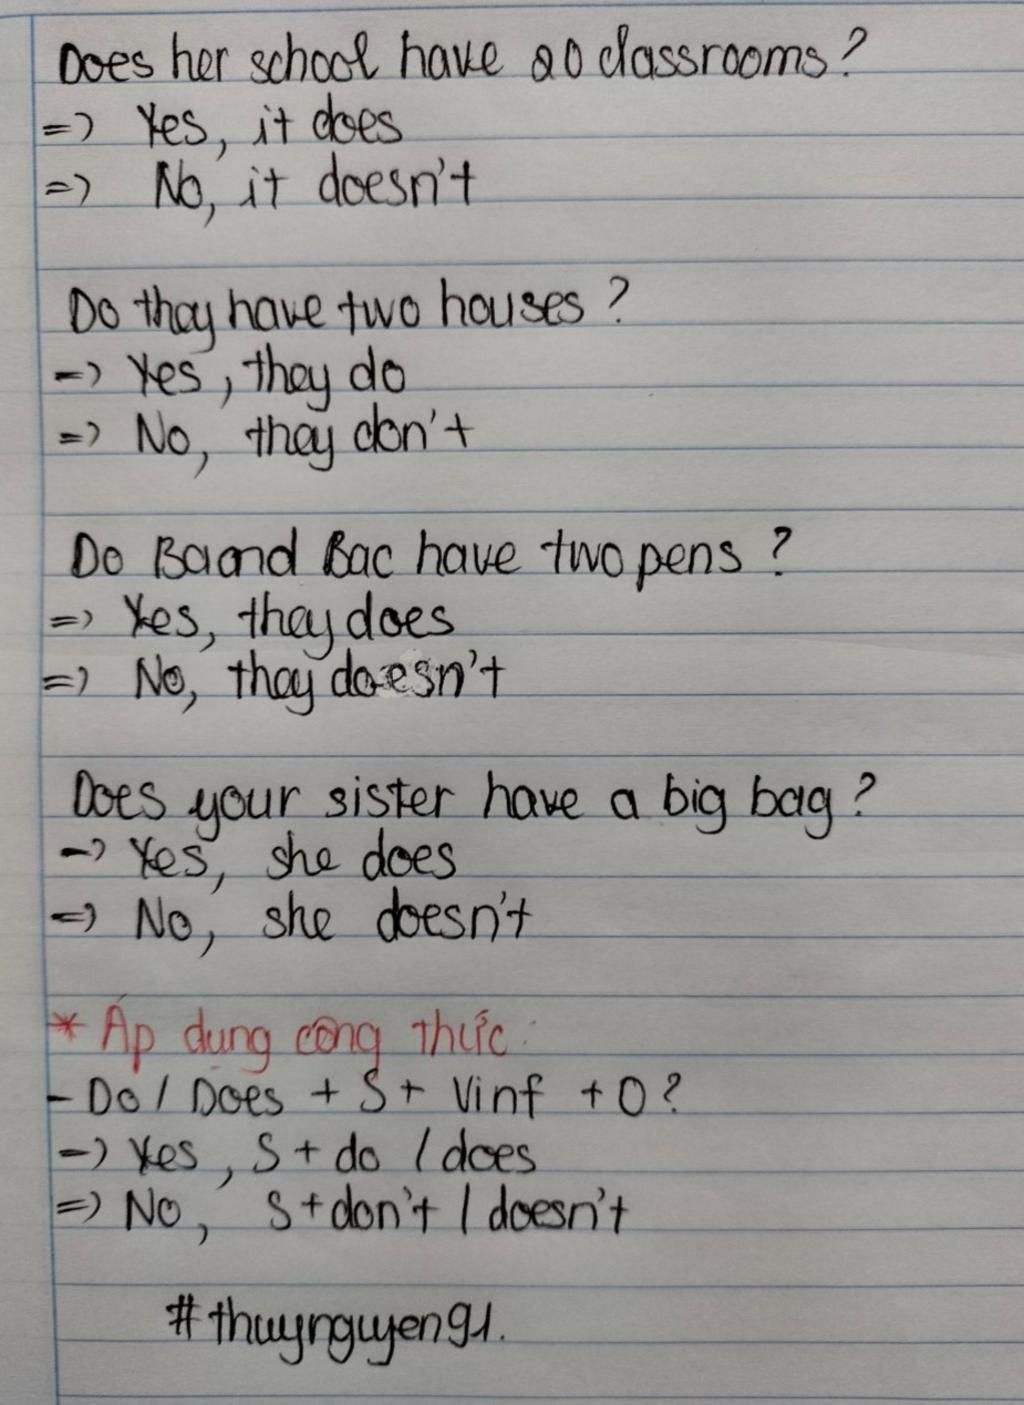 Does her school have 20 classrooms?
=> Yes, it does
=> No, it doesn't
Do they have two houses?
=> Yes, they do
=> No, they don't
Do Ba and Bac have two pens?
=> Yes, they does
=> No, they doesn't
Does your sister have a big bag?
=> Yes, she does
=> No, she doesn't
* Áp dụng công thức:
- Do / Does + S + Vinf + O?
=> Yes, S + do / does
=> No, S + don't / doesn't
#thuynguyen91.